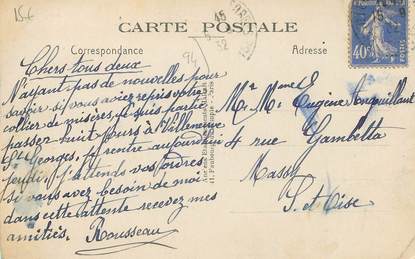 15€
CARTE POSTALE
Correspondance
Adresse
94
Chers tous deux
N'ayant pas de nouvelles pour
savoir si vous aviez repris votre
collier de misères, je suis partie
passer huit jours à Villeneuve
St Georges, je rentre aujourd'hui
jeudi, j'attends vos ordres
si vous avez besoin de moi
dans cette attente recevez mes
amitiés. Rousseau
Mr Mme Eugène
4 rue Gambetta
Massy
S. et Oise
40c